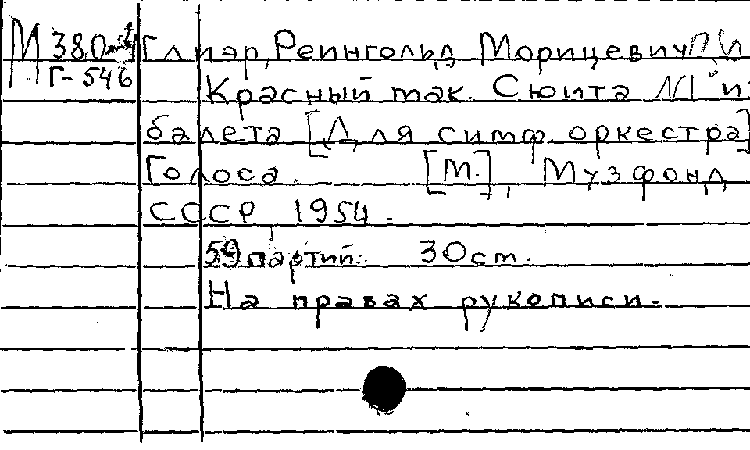 М 380 Глиэр, Рейнгольд Морицевич
Г-546 Красный мак. Сюита №1 и
балета [Для симф. оркестра]
Голоса. [М.], Музфонд
СССР, 1954.
59 партий. 30 ст.
На правах рукописи.